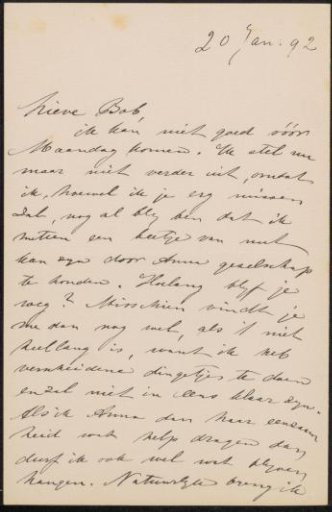 20 Jan. 92
Lieve Bob
ik kán niet goed vóór
Maandag komen. Ik stel nu
maar niet verder uit, omdat
ik, hoewel ik je erg missen
zal, nog al bly ben dat ik
meteen een beetje van nut
kan zyn door Anna gezelschap
te houden. Hoelang blyf je
weg? Misschien vindt je
me dan nog wel, als 't niet
heel lang is, want ik heb
verscheidene dingetjes te doen
en zal niet in eens klaar zyn.
Als ik Anna dan haar eenzaam
heid wat help dragen dan
durf ik ook wel wat blyven
hangen. Natuurlyk breng ik